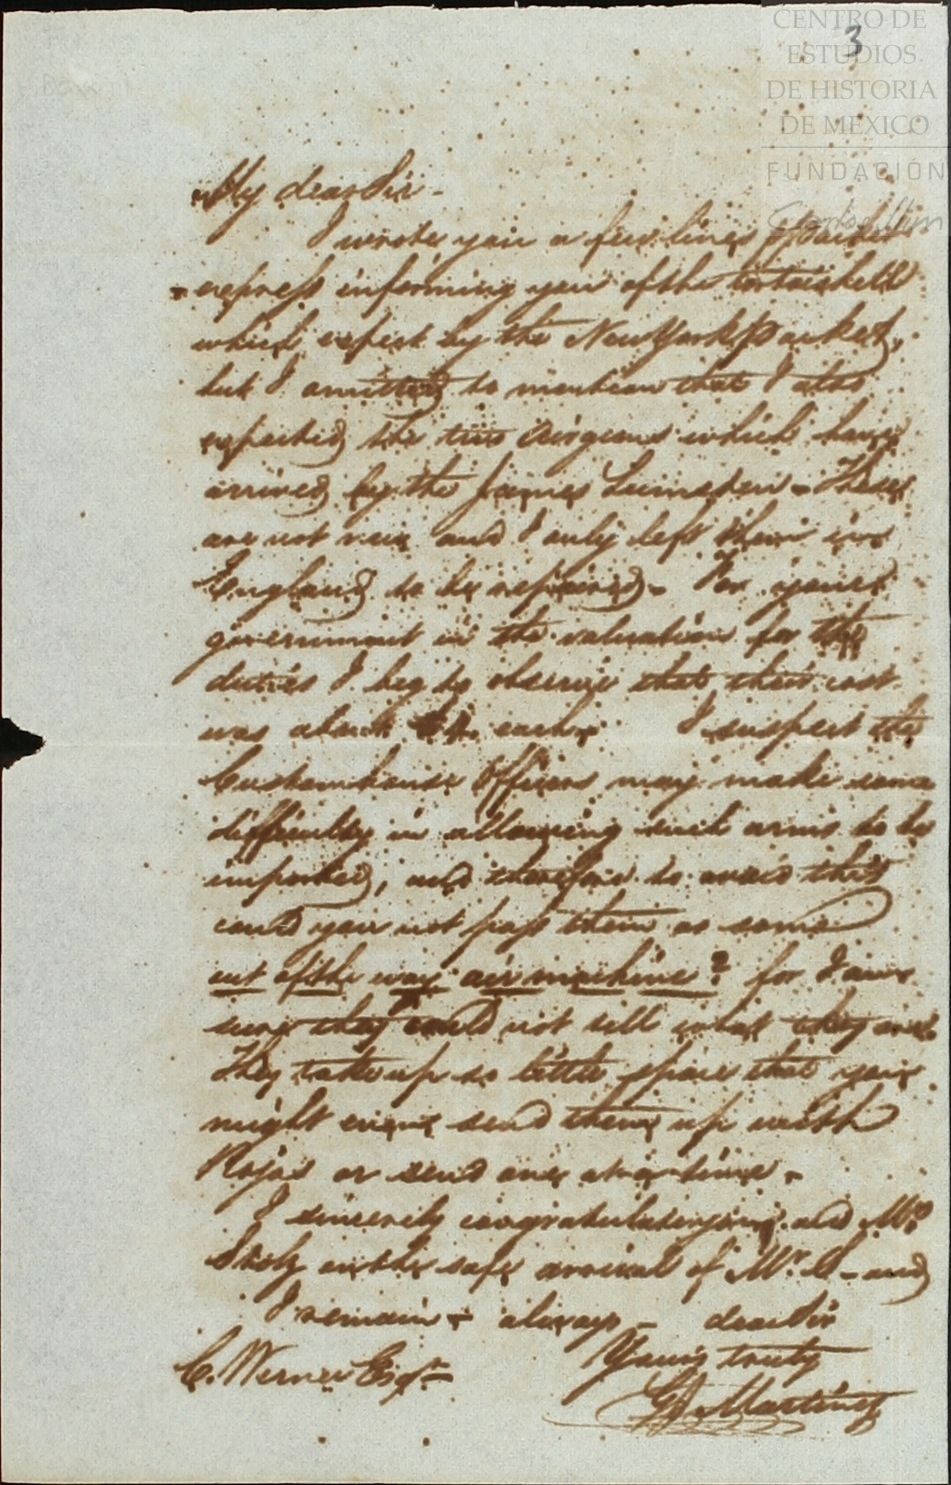 CENTRO DE
ESTUDIOS
DE HISTORIA
DE MEXICO
FUNDACIÓN
3
My dear Sir -
I wrote you a few lines
express informing you of the tortoiseshell
which expect by the New York Packet,
but I omitted to mention that I also
expected the two Airguns which have
arrived by the James Lumsden - These
are not new and I only left them in
England to be repaired - For your
government in the valuation for the
duties I beg to observe that their cost
was about each I suspect the
Customhouse Officers may make some
difficulty in allowing such arms to be
imported, and therefore to avoid this
could you not pass them as some
out of the way air machine? for I am
sure they could not tell what they are
They take up so little space that you
might even send them up with
Rojas or send one at a time -
I sincerely congratulate you and Mrs
on the safe arrival of Mr. S - and
I remain always - dear Sir
Yours truly
C. Werner Esqr -
Martinez